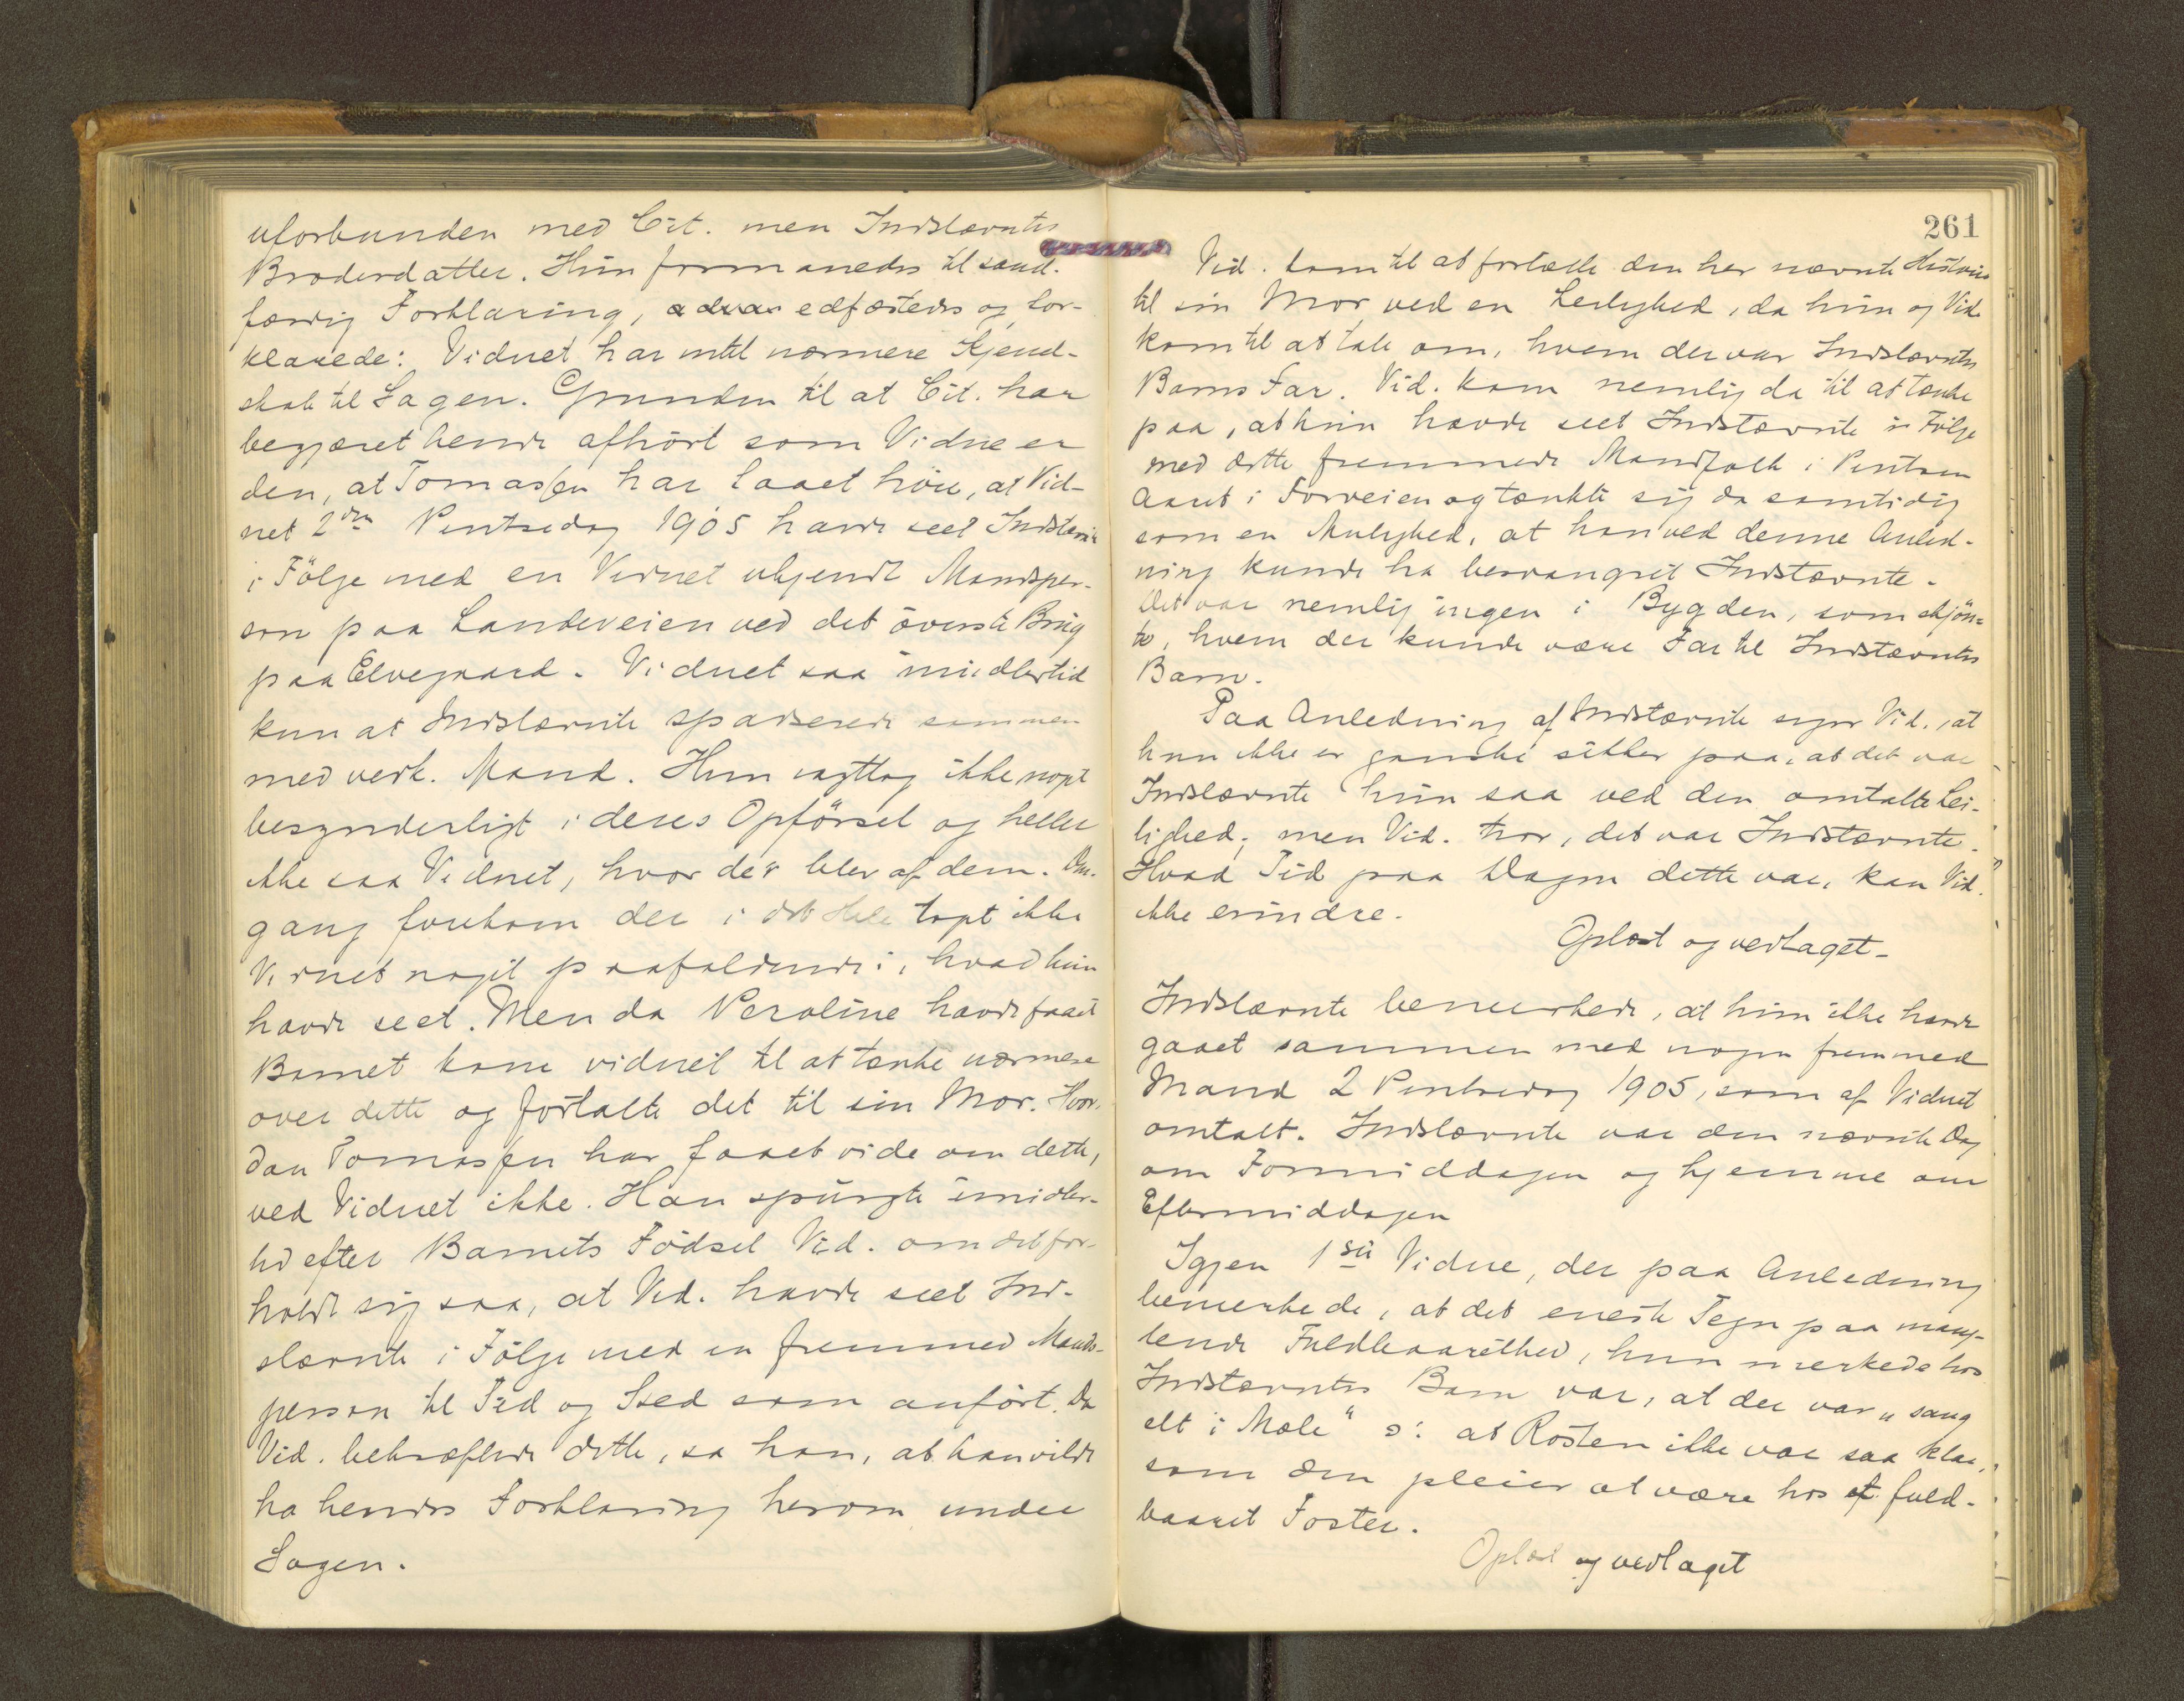 uforbunden med Cit. men Indstævntes
Broderdatter. Hun formanedes til sand-
færdig Forklaring, edfæstedes og for-
klarede: Vidnet har intet nærmere Kjend-
skab til Sagen. Grunden til at Cit. har
begjæret hende afhört som Vidne er
den, at Tomassen har laaet höre, at Vid-
net 2den Pintsedag 1905 havde seet Indstævnte
i Fölge med en Vidnet ukjendt Mandsper-
son paa Landeveien ved det överste Brug
paa Elvegaard. Vidnet saa imidlertid
kun at Indstævnte spadserede sammen
med vedk. Mand. Hun iagttog ikke noget
besynderligt i deres Opförsel og heller
ikke saa Vidnet, hvor der blev af dem. Den-
gang forekom der i det Hele taget ikke
Vidnet noget paafaldende i, hvad hun
havde seet. Men da Peroline havde faaet
Barnet kom vidnet til at tænke nærmere
over dette og fortalte det til sin Mor. Hvor-
dan Tomassen har faaet vide om dette,
ved Vidnet ikke. Han spurgte imidler-
tid efter Barnets Födsel Vid. om det for-
holdt sig saa, at Vid. havde seet Ind-
stævnte i Fölge med en fremmed Mands-
person til Tid og Sted som anfört. Da
Vid. bekræftede dette, sa han, at han vilde
ha hendes Forklaring herom under
Sagen.
261
Vid. kom til at fortælle den her nævnte Historie
til sin Mor ved en Leilighed, da hun og Vid.
kom til at tale om, hvem der var Indstævntes
Barns Far. Vid. kom nemlig da til at tænke
paa, at hun havde seet Indstævnte i Fölge
med dette fremmede Mandfolk i Pintsen
Aaret i Forveien og tænkte sig da samtidig
som en Mulighed, at han ved denne Anled-
ning kunde ha besvangret Indstævnte.
Det var nemlig ingen i Bygden, som skjön-
te, hvem der kunde være Far til Indstævntes
Barn.
Paa Anledning af Indstævnte siger Vid., at
hun ikke er ganske sikker paa, at det var
Indstævnte hun saa ved den omtalte Lei-
lighed; men Vid. tror, det var Indstævnte.
Hvad Tid paa Dagen dette var, kan Vid.
ikke erindre.
Oplæst og vedtaget.
Indstævnte bemerkede, at hun ikke havde
gaaet sammen med nogen fremmed
Mand 2 Pintsedag 1905, som af Vidnet
omtalt. Indstævnte var den nævnte Dag
om Formiddagen og hjemme om
Eftermiddagen
Igjen 1ste Vidne, der paa Anledning
bemerkede, at det eneste Tegn paa mang-
lende Fuldbaarethed, hun merkede hos
Indstævntes Barn var, at der var „sang
elt i Mæle“ ɔ: at Rösten ikke var saa klar,
som den pleier at være hos et fuld-
baaret Foster.
Oplæst og vedtaget